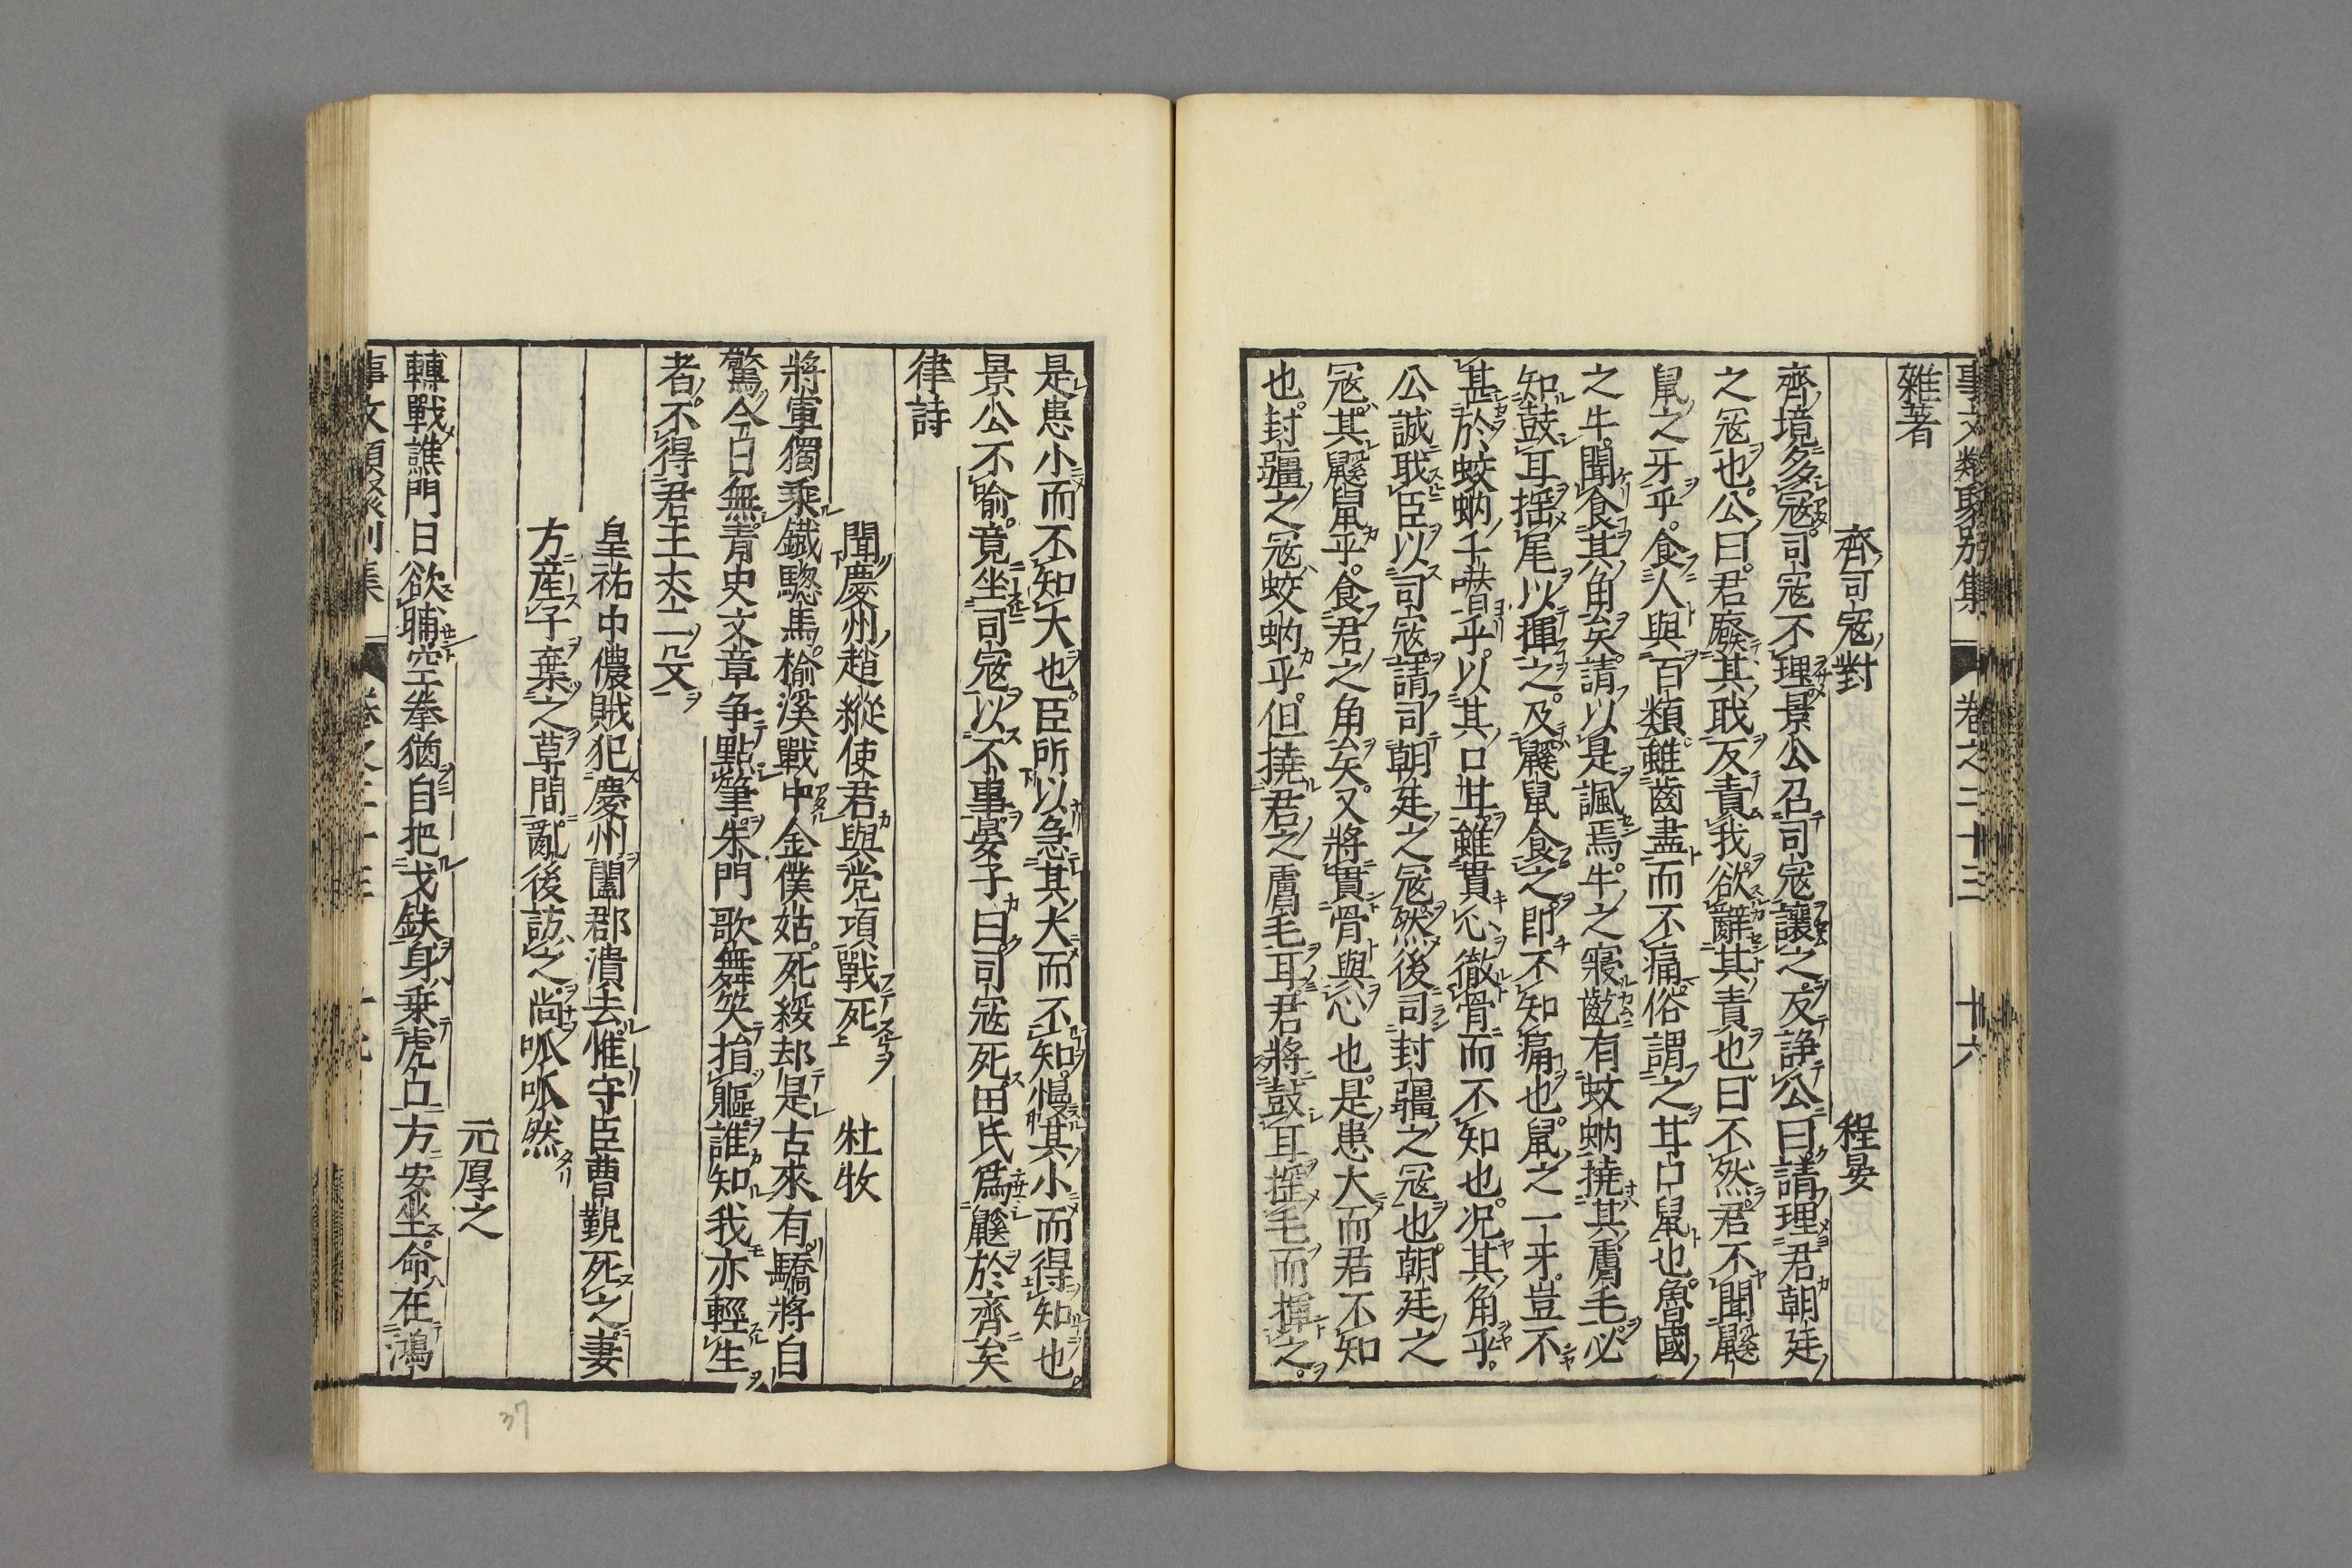 事文類聚別集 卷之二十三 十六
雜著
齊司寇對 程晏
齊境多寇。司寇不理。景公召司寇讓之。反諍公曰請理君朝廷
之寇也。公曰。君廢其戢反責我。欲辭其責也曰不然。君不聞鼷
鼠之牙乎。食人與百類。雖齒盡而不痛。俗謂之甘口鼠也。魯國
之牛。聞食其角矣。請以是諷焉。牛之寢齕有蚊蚋撓其膚毛。必
知鼓耳揺尾以揮之。及鼷鼠食之即不知痛也。鼠之一牙。豈不
甚於蚊蚋千噆乎。以其口甘。雖貫心徹骨而不知也。况其角乎。
公誠戢臣以司寇請司朝廷之寇然後司封疆之寇也。朝廷之
寇。其鼷鼠乎。食君之角矣。又將貫骨與心也。是患大而君不知
也。封疆之寇蚊蚋乎。但撓君之膚毛耳君將鼓耳揺毛而揮之。
是患小而不知大也。臣所以急其大而不知。慢其小而得知也。
景公不喻。竟坐司寇以不事。晏子曰司寇死田氏爲鼷於齊矣
律詩
聞慶州趙縱使君與党項戰死 杜牧
將軍獨乘鐵驄馬。榆溪戰中金僕姑。死綏却是古來有。驕將自
驚今日無。青史文章争點筆。朱門歌舞笑捐軀。誰知我亦輕生
者。不得君王丈二殳
皇祐中儂賊犯慶州闔郡潰去惟守臣曹覲死之妻
方産子棄之草間。亂後訪之尚呱呱然
元厚之
轉戰譙門日欲晡空拳猶自把戈鈇身乗虎口方安坐。命在鴻
事文類聚別集 卷之二十三